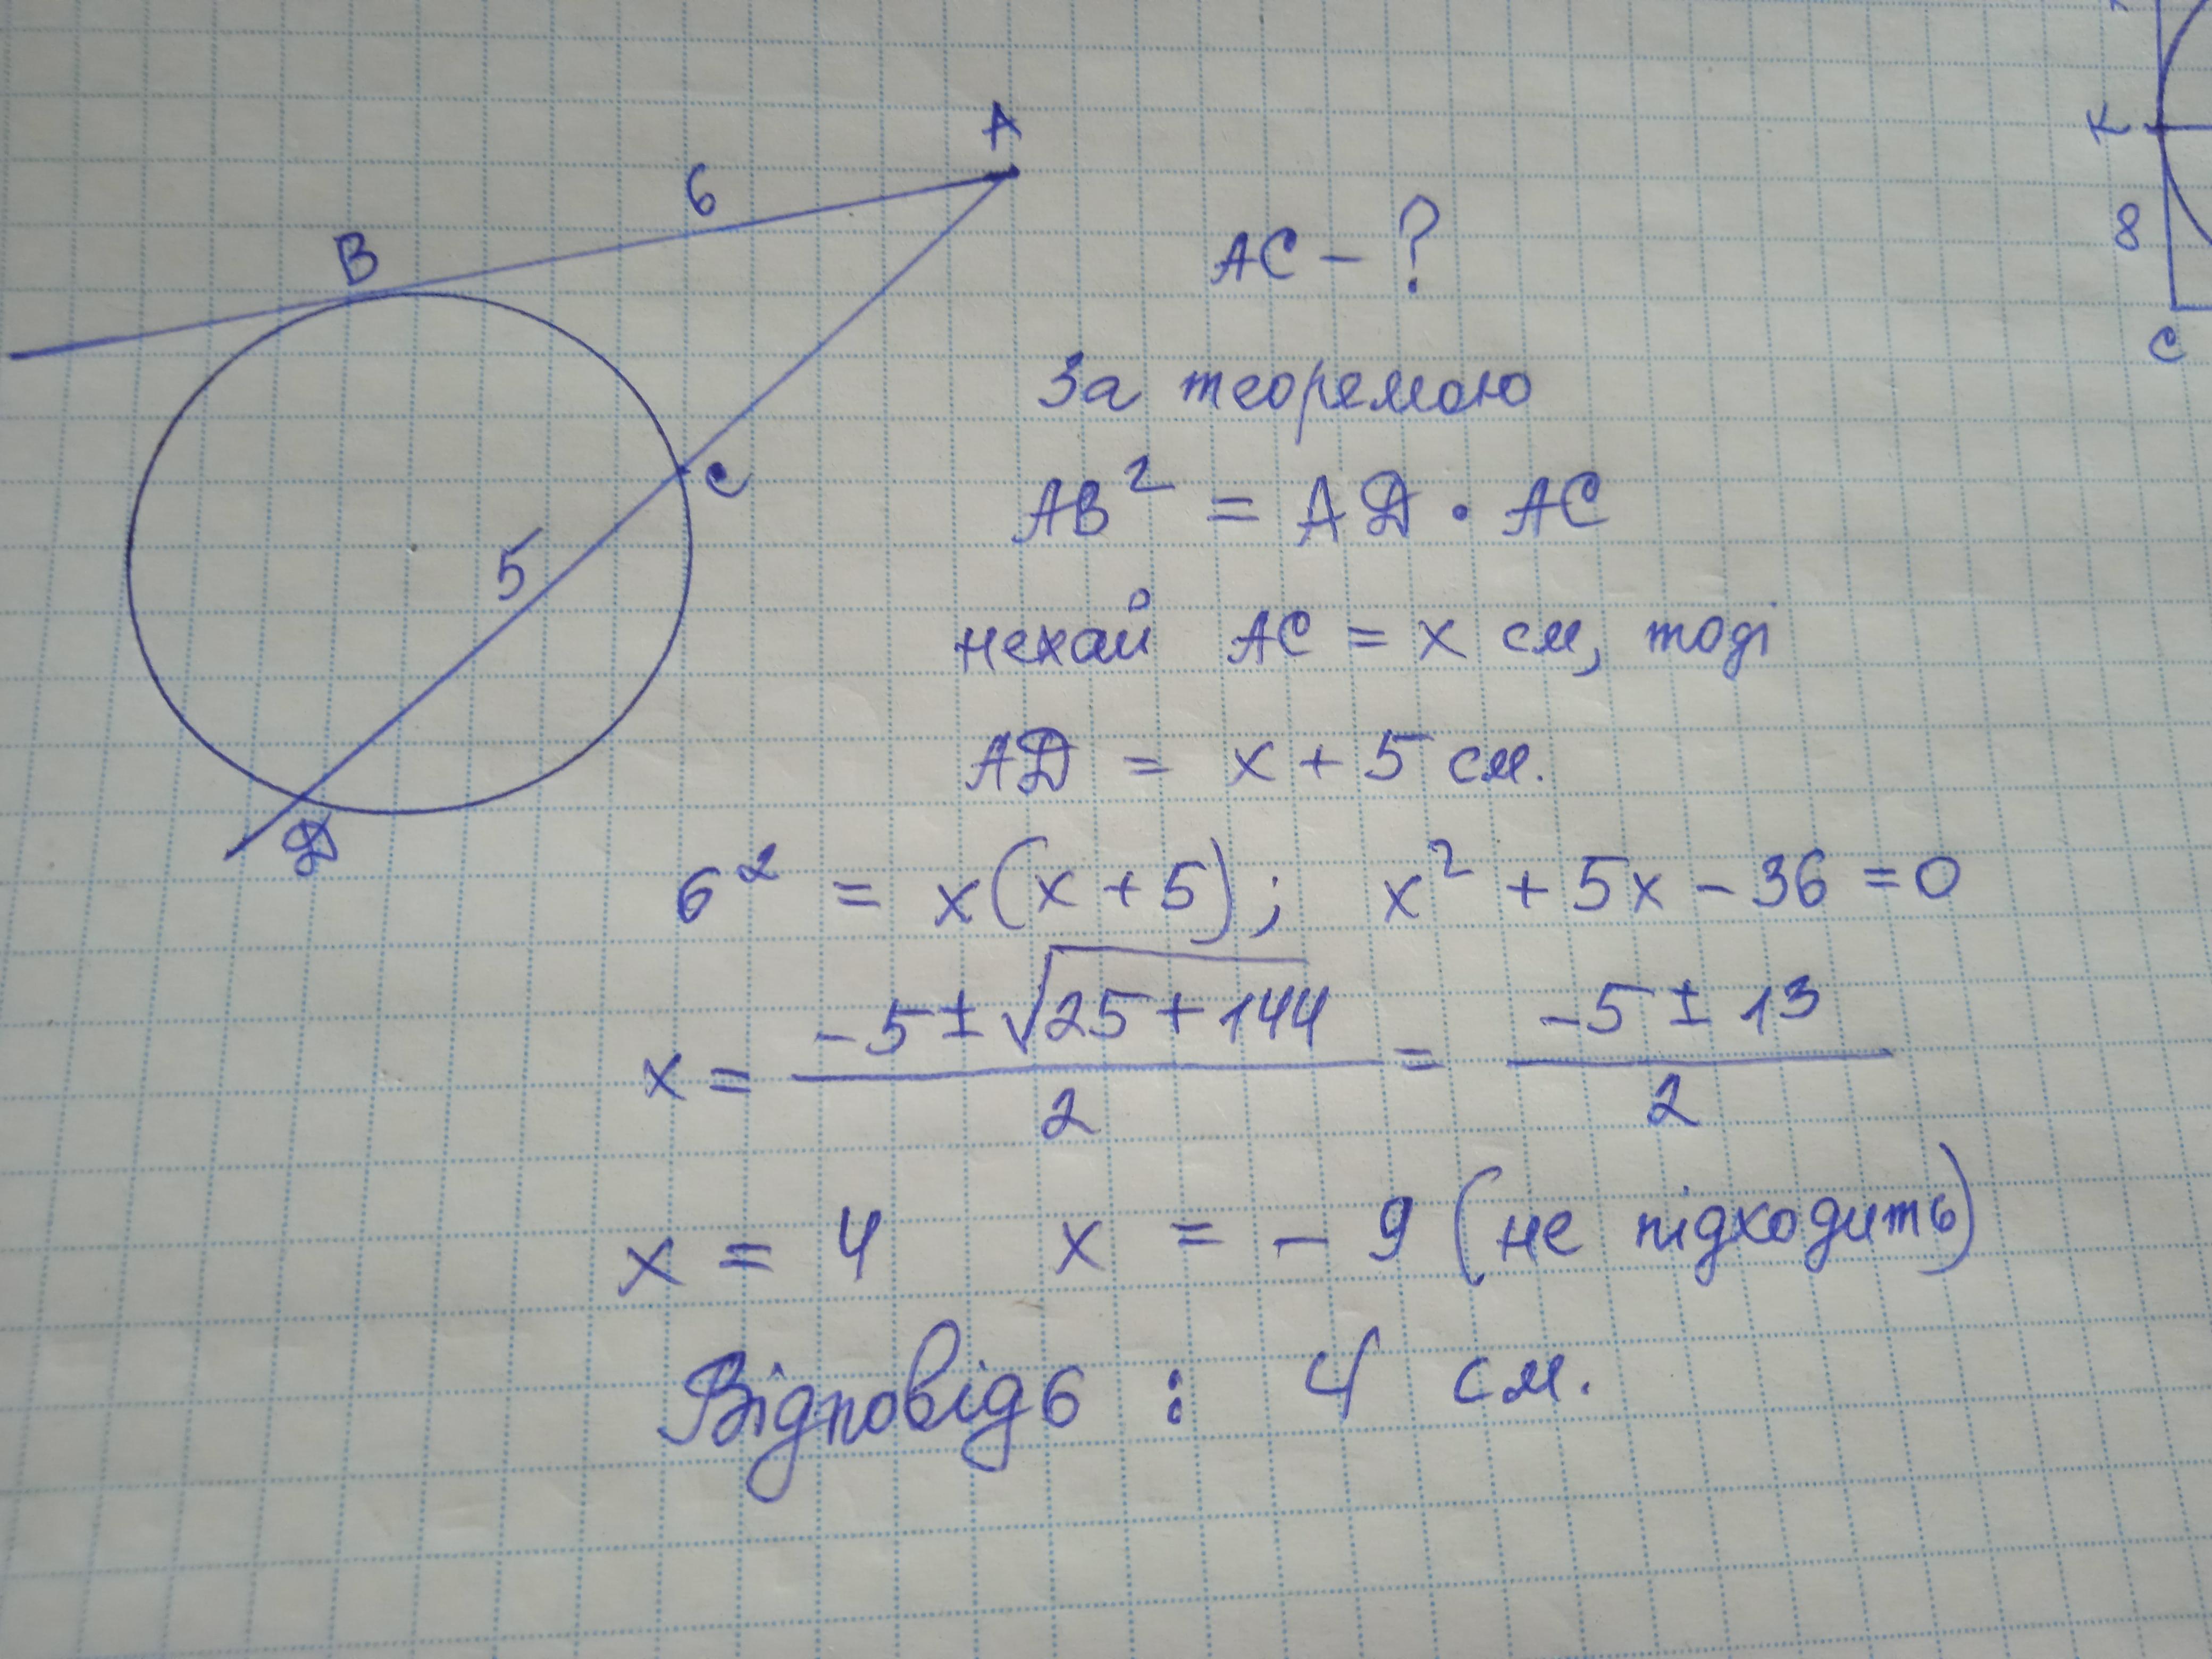 A
6
B
C
5
D
AC - ?
За теоремою
AB² = AD · AC
нехай AC = x см, тоді
AD = x + 5 см.
6² = x(x + 5); x² + 5x - 36 = 0
x = (-5 ± √(25 + 144))/2 = (-5 ± 13)/2
x = 4 x = - 9 (не підходить)
Відповідь : 4 см.
K
8
C